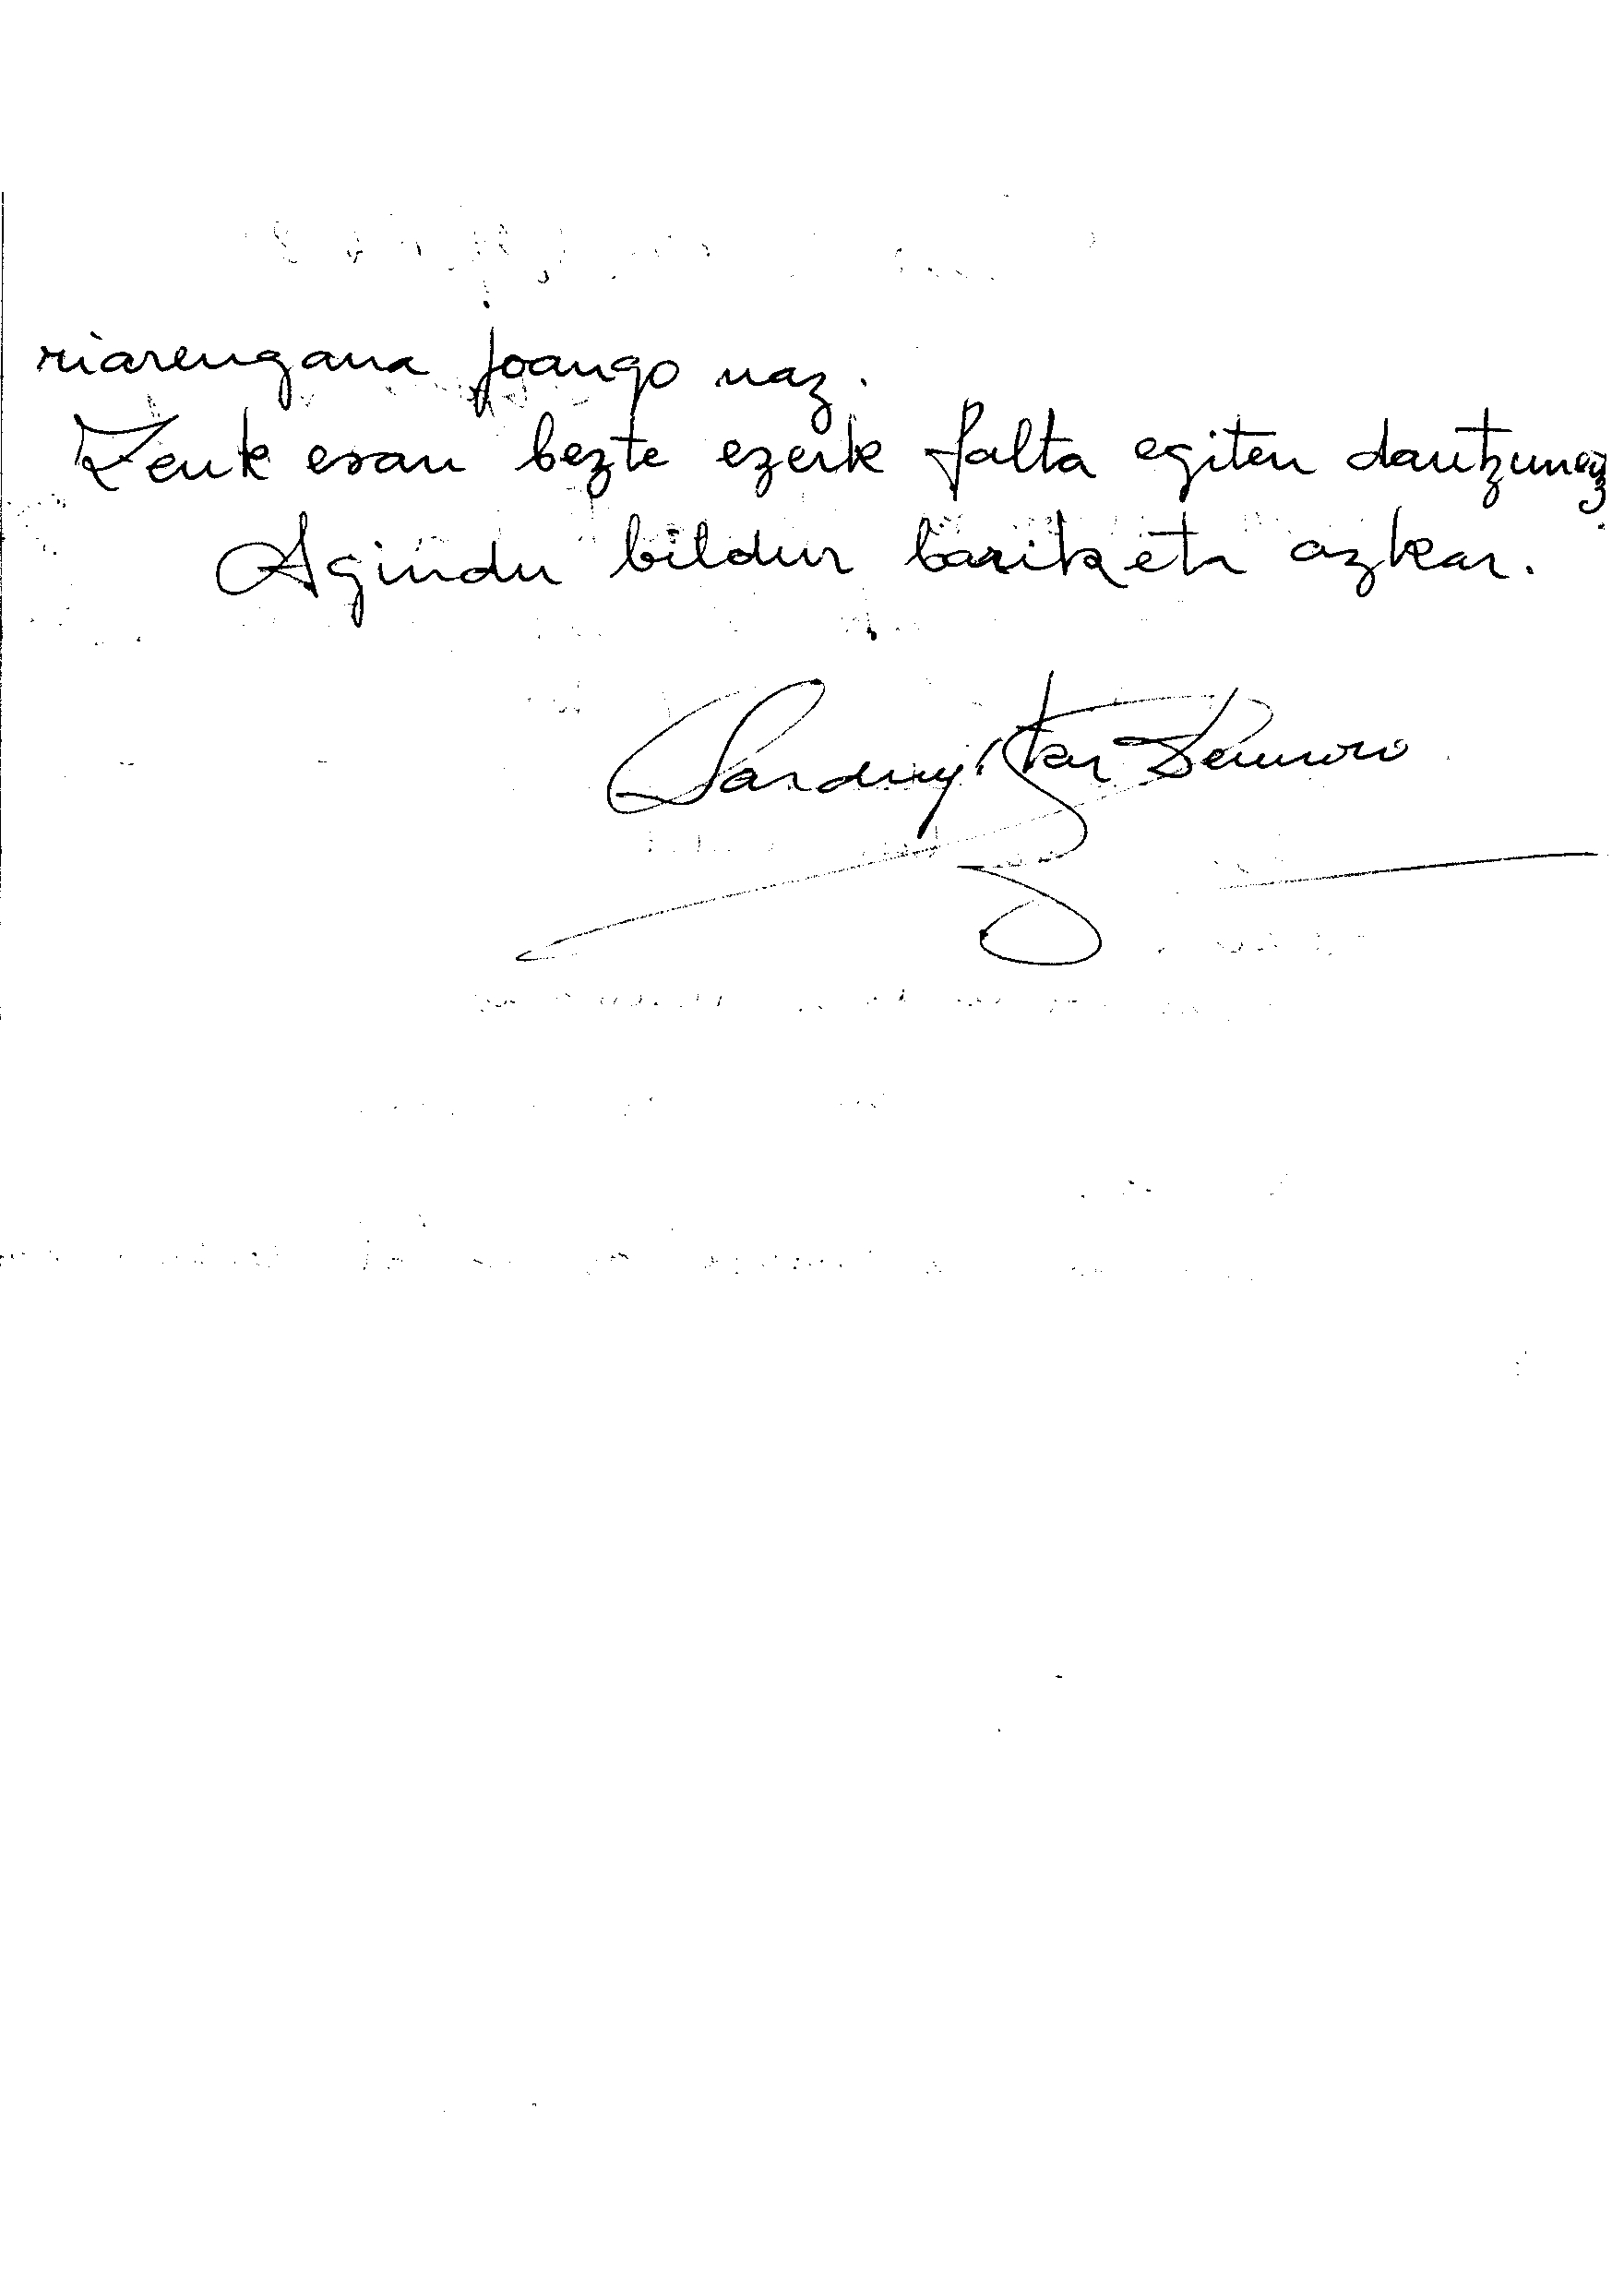 riarengana joango naz.
Zeuk esan bezte ezerk falta egiten dautzunez
Agindu bildur barik eta azkar.
Sarduy'tar